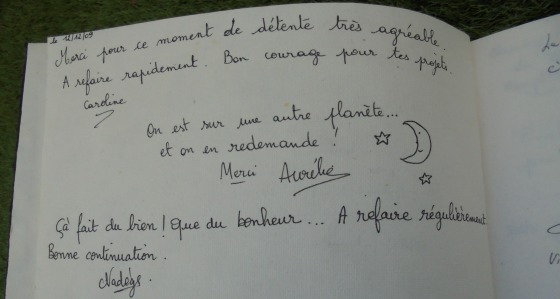 le 12/12/09
Merci pour ce moment de détente très agréable.
A refaire rapidement. Bon courage pour tes projets.
Caroline
On est sur une autre planète...
et on en redemande !
Merci Aurélie
Çà fait du bien ! Que du bonheur... A refaire régulièrement
Bonne continuation.
Nadège.